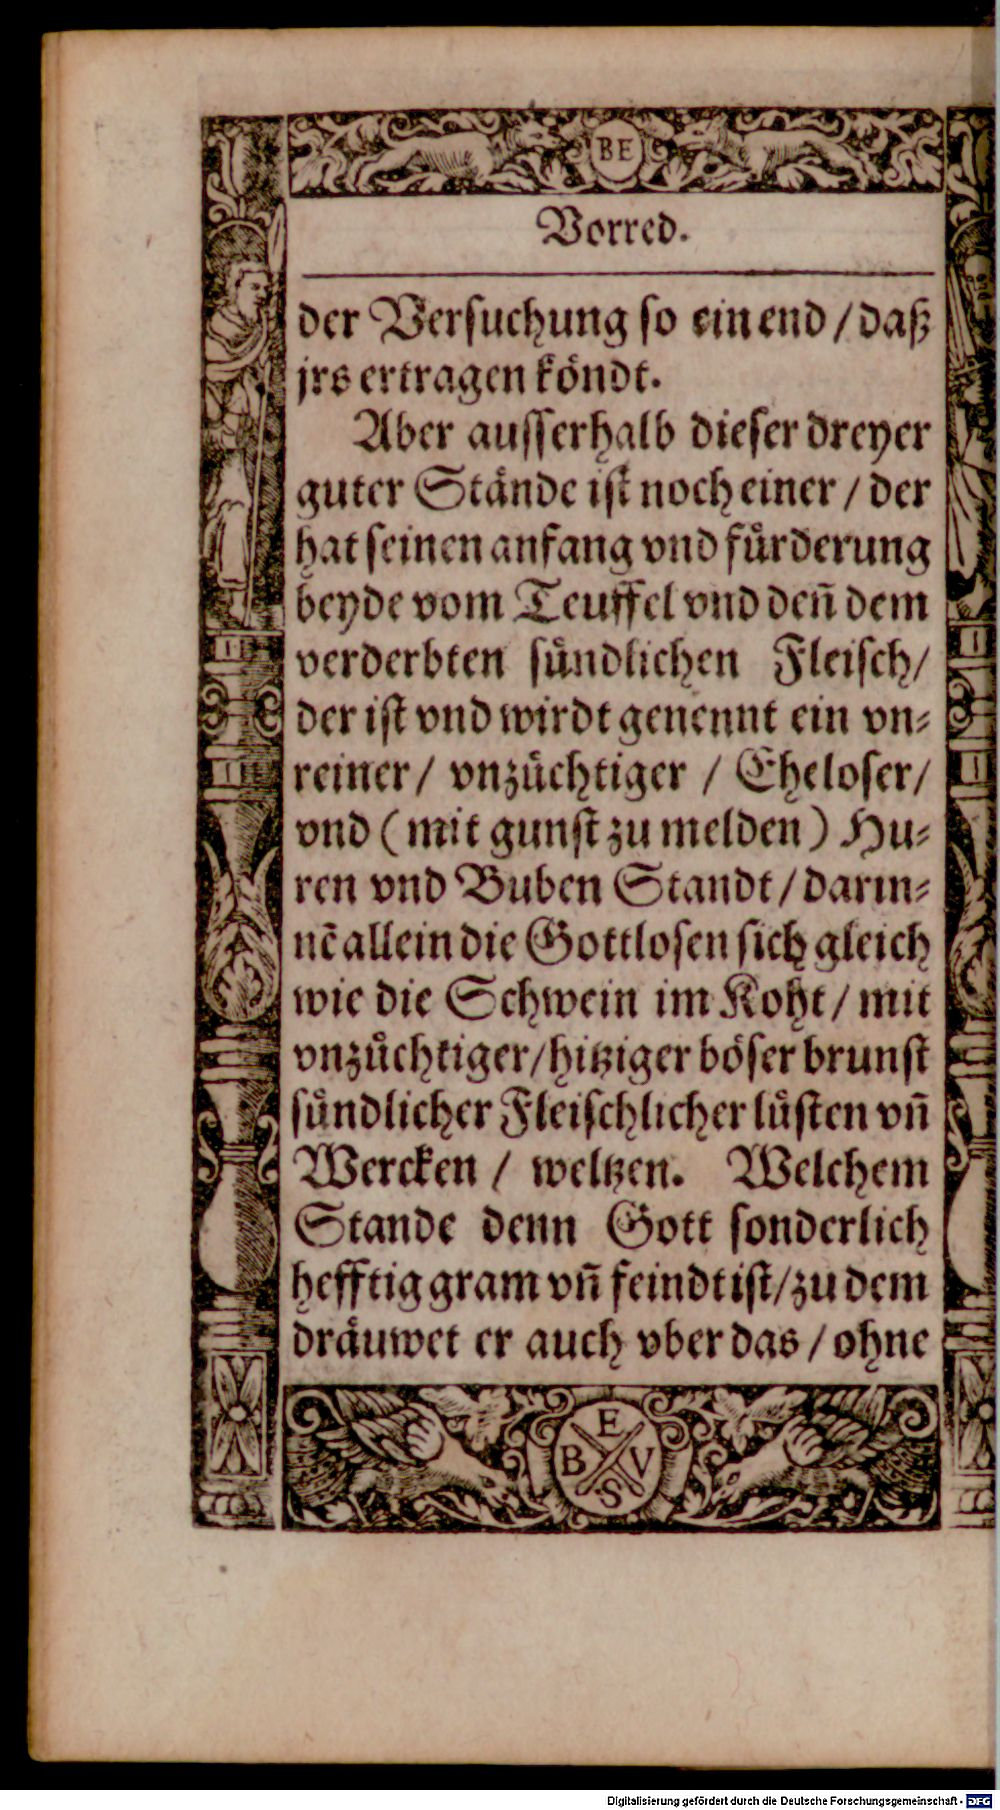 BE
Vorred.
der Versuchung so ein end / daß
jrs ertragen köndt.
Aber ausserhalb dieser dreyer
guter Stände ist noch einer / der
hat seinen anfang vnd fůrderung
beyde vom Teuffel vnd deñ dem
verderbten sůndlichen Fleisch /
der ist vnd wirdt genennt ein vn⸗
reiner / vnzůchtiger / Eheloser /
vnd ( mit gunst zu melden ) Hu⸗
ren vnd Buben Standt / darin⸗
nē allein die Gottlosen sich gleich
wie die Schwein im Koht / mit
vnzůchtiger / hitziger böser brunst
sůndlicher Fleischlicher lůsten vñ
Wercken / weltzen. Welchem
Stande denn Gott sonderlich
hefftig gram vñ feindt ist / zu dem
dräuwet er auch vber das / ohne
E
B V
S
Digitalisierung gefördert durch die Deutsche Forschungsgemeinschaft - DFG